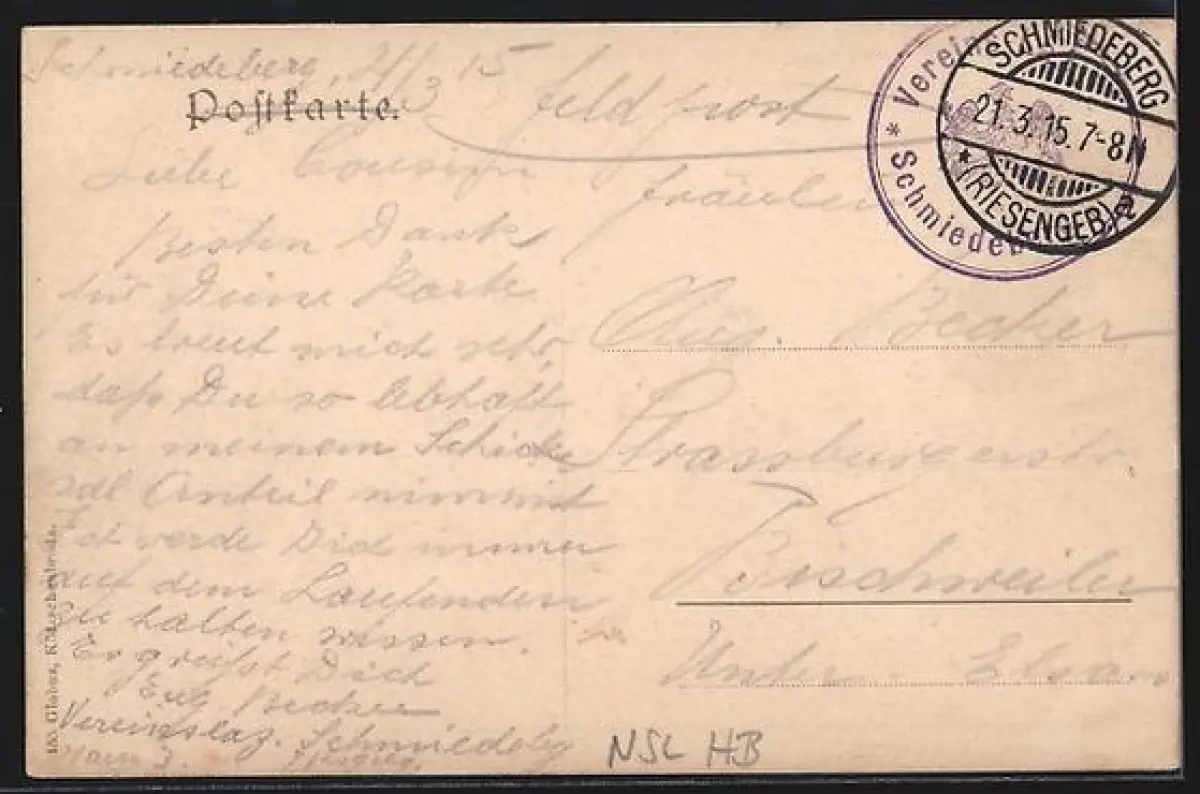 Schmiedeberg, 21/3 15
Postkarte.
Feldpost
Liebe Cousine
Besten Dank
für Deine Karte
Es freut mich sehr,
dass Du so lebhaft
an meinem Schick
sal Anteil nimmst
Ich werde Dich immer
auf dem Laufenden
zu halten wissen.
Es grüßt Dich
Becker
Vereinslaz. Schmiedebg
Fräulein
Becker
Strassburgerstr.
Bischweiler
Unter-Elsass
Verein
* Schmiedeb
SCHMIEDEBERG
21.3.15.7-8N
* (RIESENGEB.) a
NSL HB